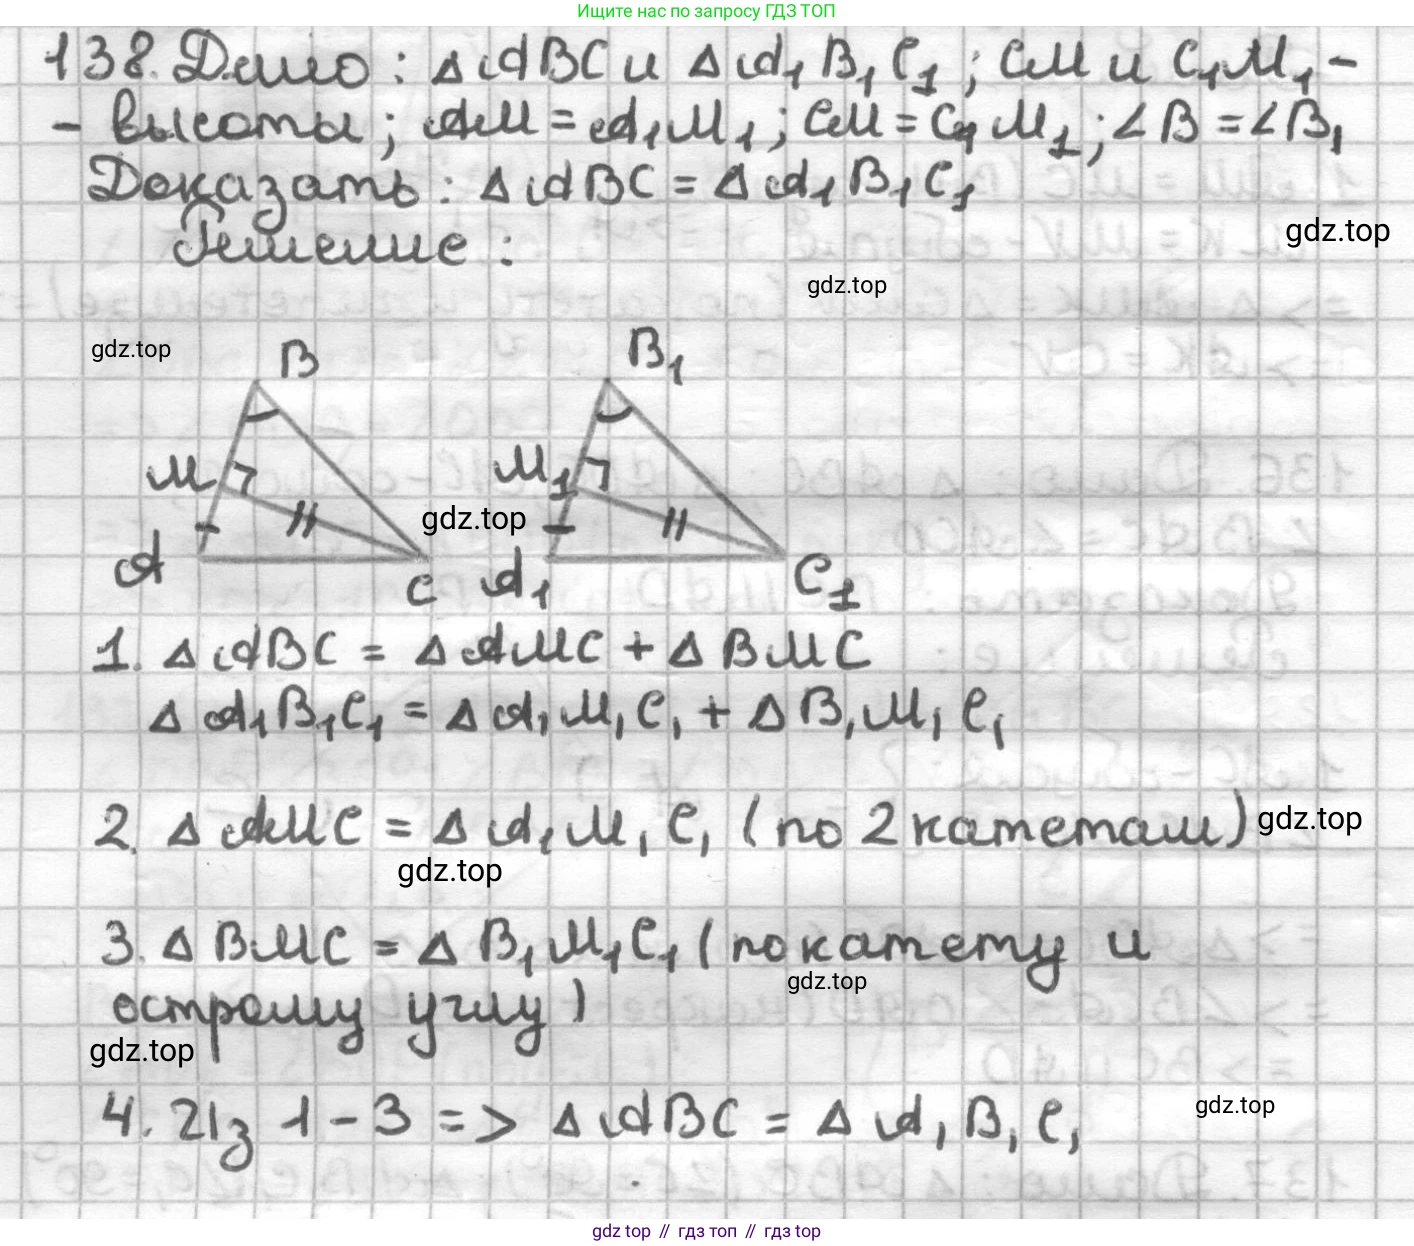 Ищите нас по запросу ГДЗ ТОП
138. Дано: △ABC и △A₁B₁C₁; CM и C₁M₁ -
- высоты; AM = A₁M₁; CM = C₁M₁; ∠B = ∠B₁
Доказать: △ABC = △A₁B₁C₁
Решение:
gdz.top
gdz.top
gdz.top
B
B₁
M
M₁
gdz.top
A
C
A₁
C₁
1. △ABC = △AMC + △BMC
△A₁B₁C₁ = △A₁M₁C₁ + △B₁M₁C₁
2. △AMC = △A₁M₁C₁ (по 2 катетам)
gdz.top
gdz.top
3. △BMC = △B₁M₁C₁ (по катету и
gdz.top
острому углу)
gdz.top
gdz.top
4. Из 1-3 => △ABC = △A₁B₁C₁
gdz top // гдз топ // гдз top